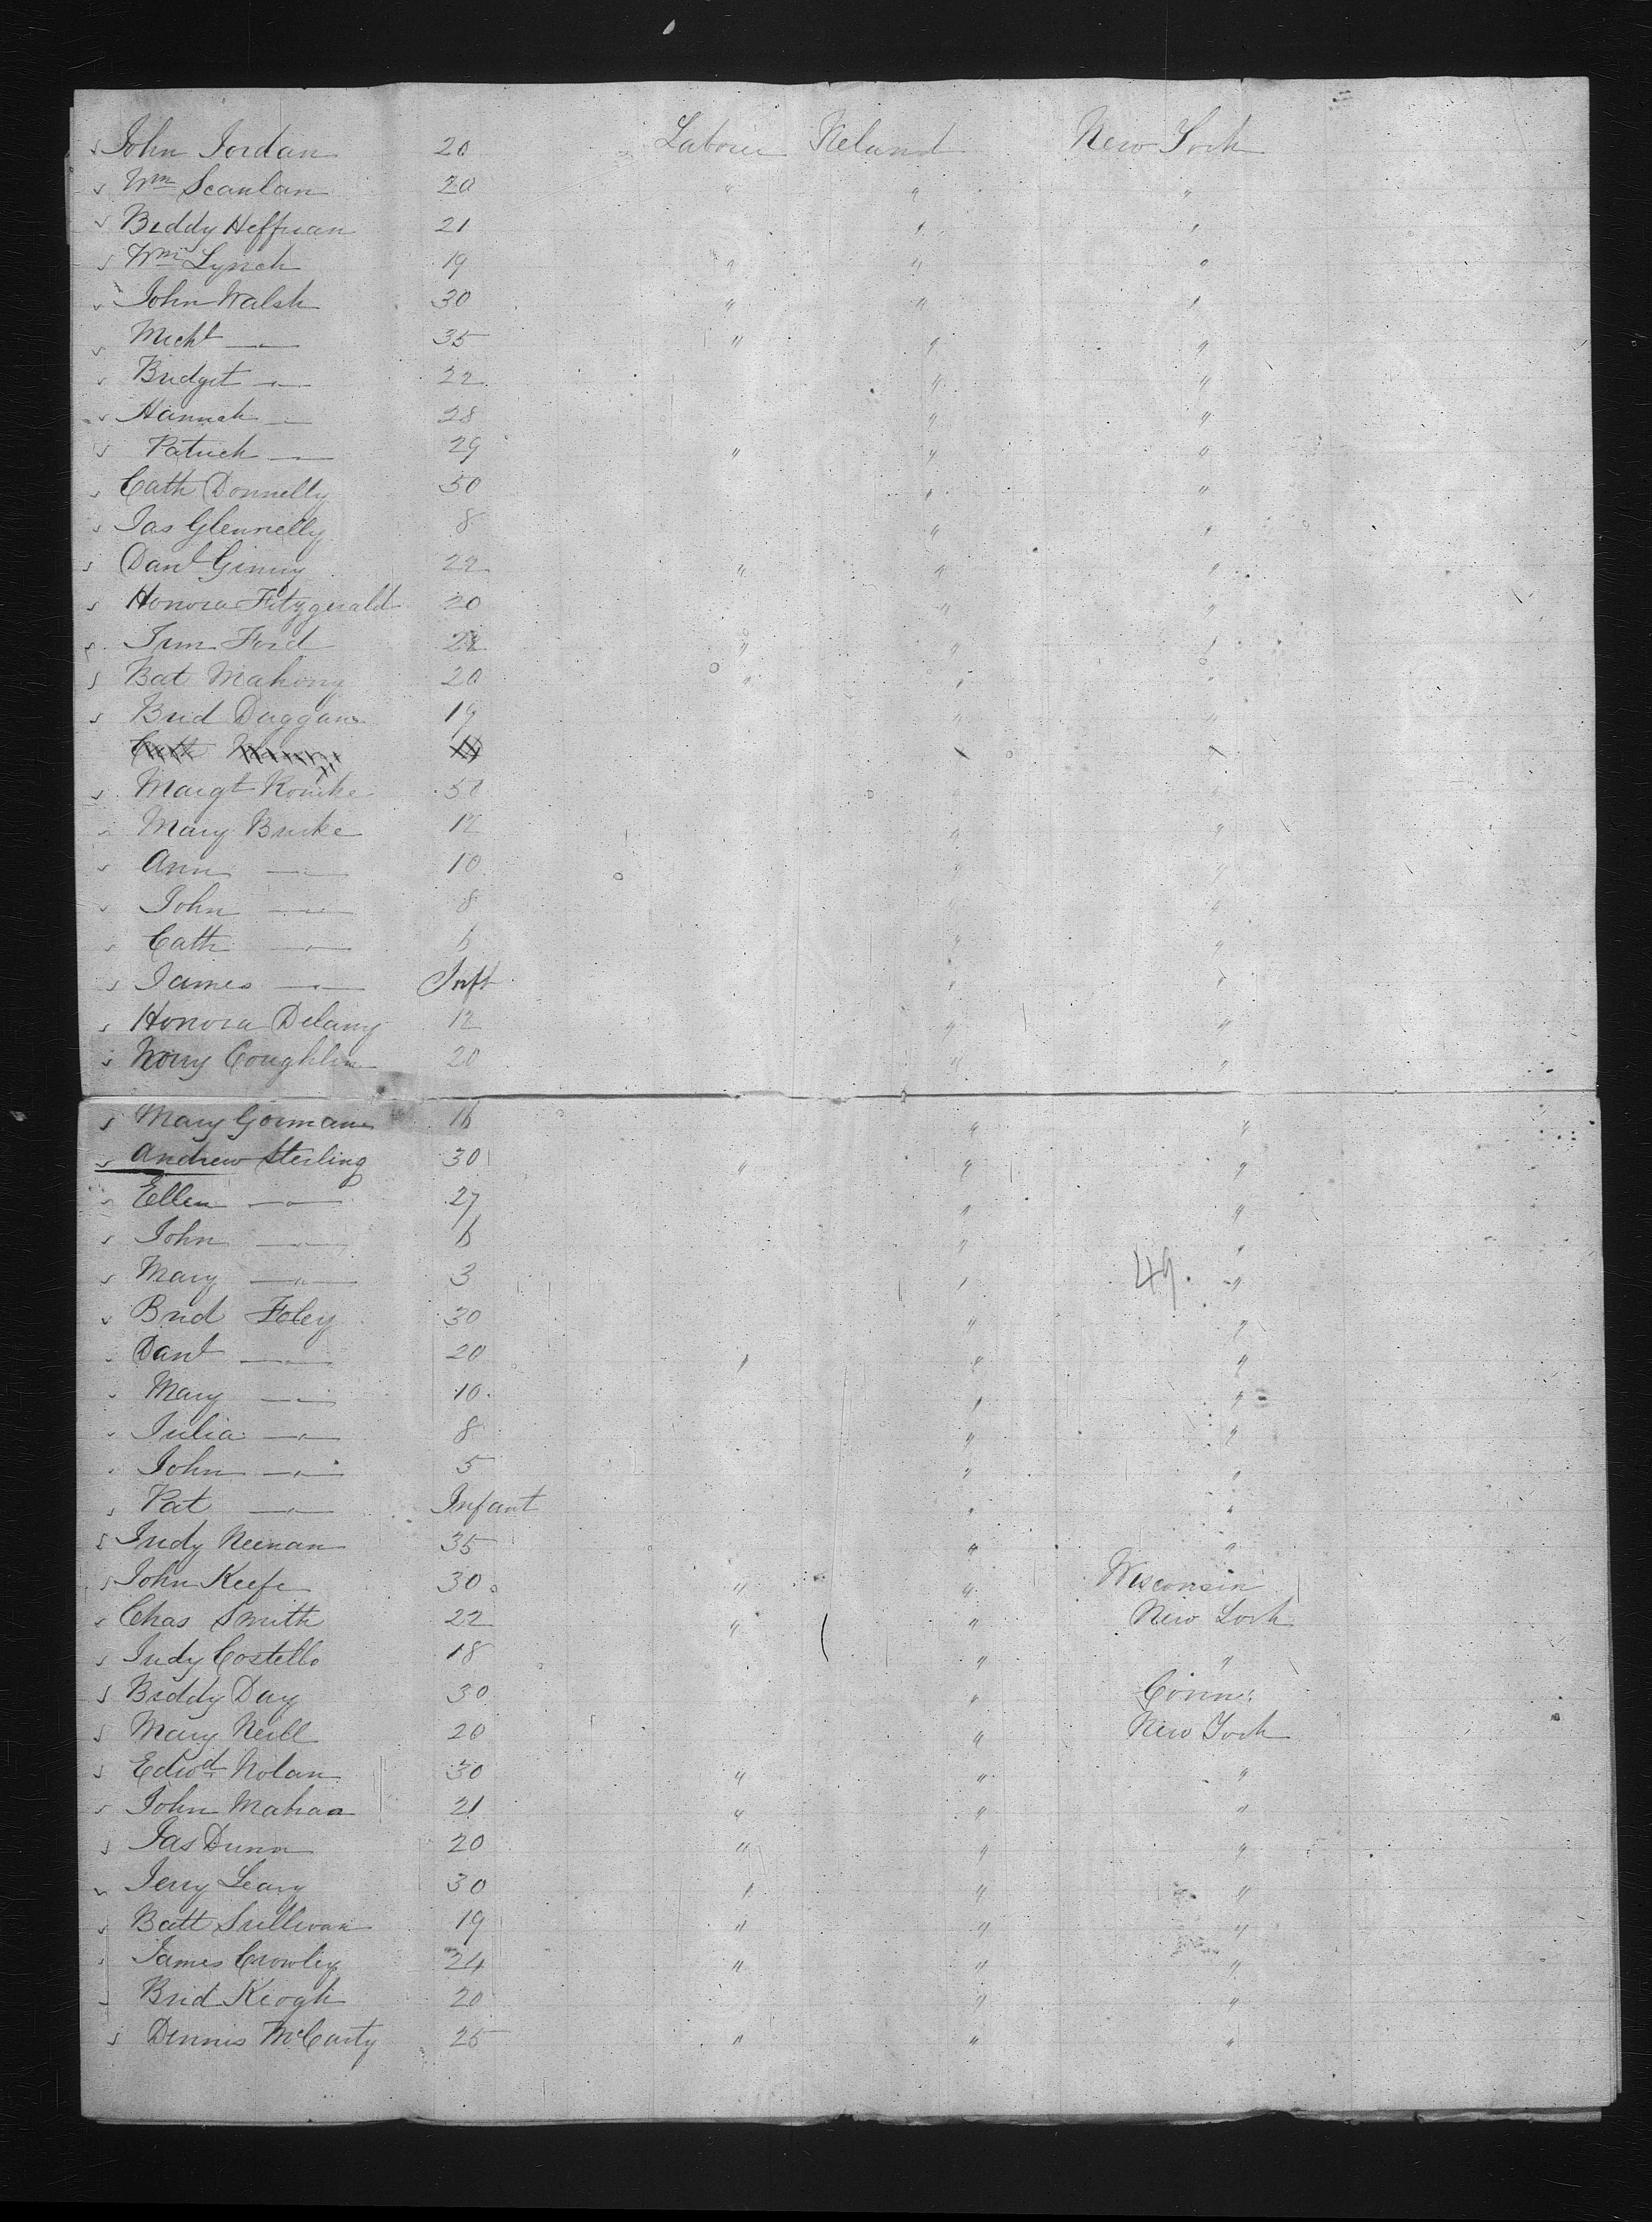 John Jordan 20 Labour Ireland New York
Wm Scanlan 20 " " "
Biddy Heffnan 21 " "
Wm Lynch 19 " " "
John Walsh 30 " " "
Michl —"— 35 " " "
Bridget —"— 22 " "
Hannah —"— 28 " "
Patrick —"— 29 " " "
Cath Donnelly 50 " "
Jas Glennelly 8 " "
Danl Ginny 22 " " "
Honora Fitzgerald 20 " "
Jim Ford " " "
Bat Mahony 20 " " "
Brid Duggan 19 " "
Cath " "
Margt " "
Mary Burke 12 " "
Ann —"— 10 " "
John —"— 8 " "
Cath —"— 6 " "
James —"— Inft " "
Honora Delany 12 " "
Nory Coughlin 20 " "
Mary Gorman 16 " "
Andrew Sterling 30 " " "
Ellen —"— 27 " "
John —"— 6 " "
Mary —"— 3 " 49. "
Brid Foley 30 " "
Danl —"— 20 " " "
Mary —"— 10 " "
Julia —"— 8 " "
John —"— 5 " "
Pat —"— Infant " "
Judy Neenan 35 " "
John Keefe 30 " " Wisconsin
Chas Smith 22 " " New York
Judy Costello 18 " "
Biddy Day 30 " Conn.
Mary Neill 20 " New York
Edwd Nolan 30 " " "
John Mahan 21 " " "
Jas Dunn 20 " " "
Jerry Leary 30 " " "
Batt Sullivan 19 " " "
James Crowley 24 " " "
Brid Keogh 20 " "
Dennis McCarty 25 " " "